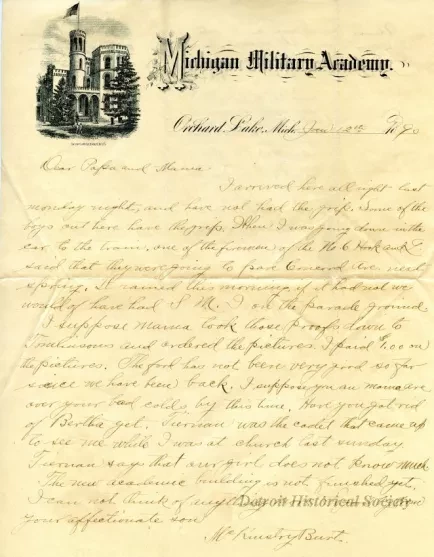 Michigan Military Academy.
Orchard Lake, Mich. Jan 12th 1890
Dear Papa and Mama
I arrived here all right last
monday night, and have not had the grip. Some of the
boys out here have the grip. When I was going down in the
car to the train, one of the firemen of the No 6 Hook and L
said that they were going to pave Concord Ave next
spring. It rained this morning, if it had not we
would of have had S. M. I on the parade ground.
I suppose Mama took those proofs down to
Tomlinsons and ordered the pictures. I paid $1.00 on
the pictures. The food has not been very good so far
since we have been back. I suppose you an mama are
over your bad colds by this time. Have you got rid
of Bertha yet. Tiernan was the cadet that came up
to see me while I was at church last sunday.
Tiernan says that our girl does not know much.
The new academic building is not finished yet.
I can not think of any
Detroit Historical Society
your affectionate son
McKinstry Burt.